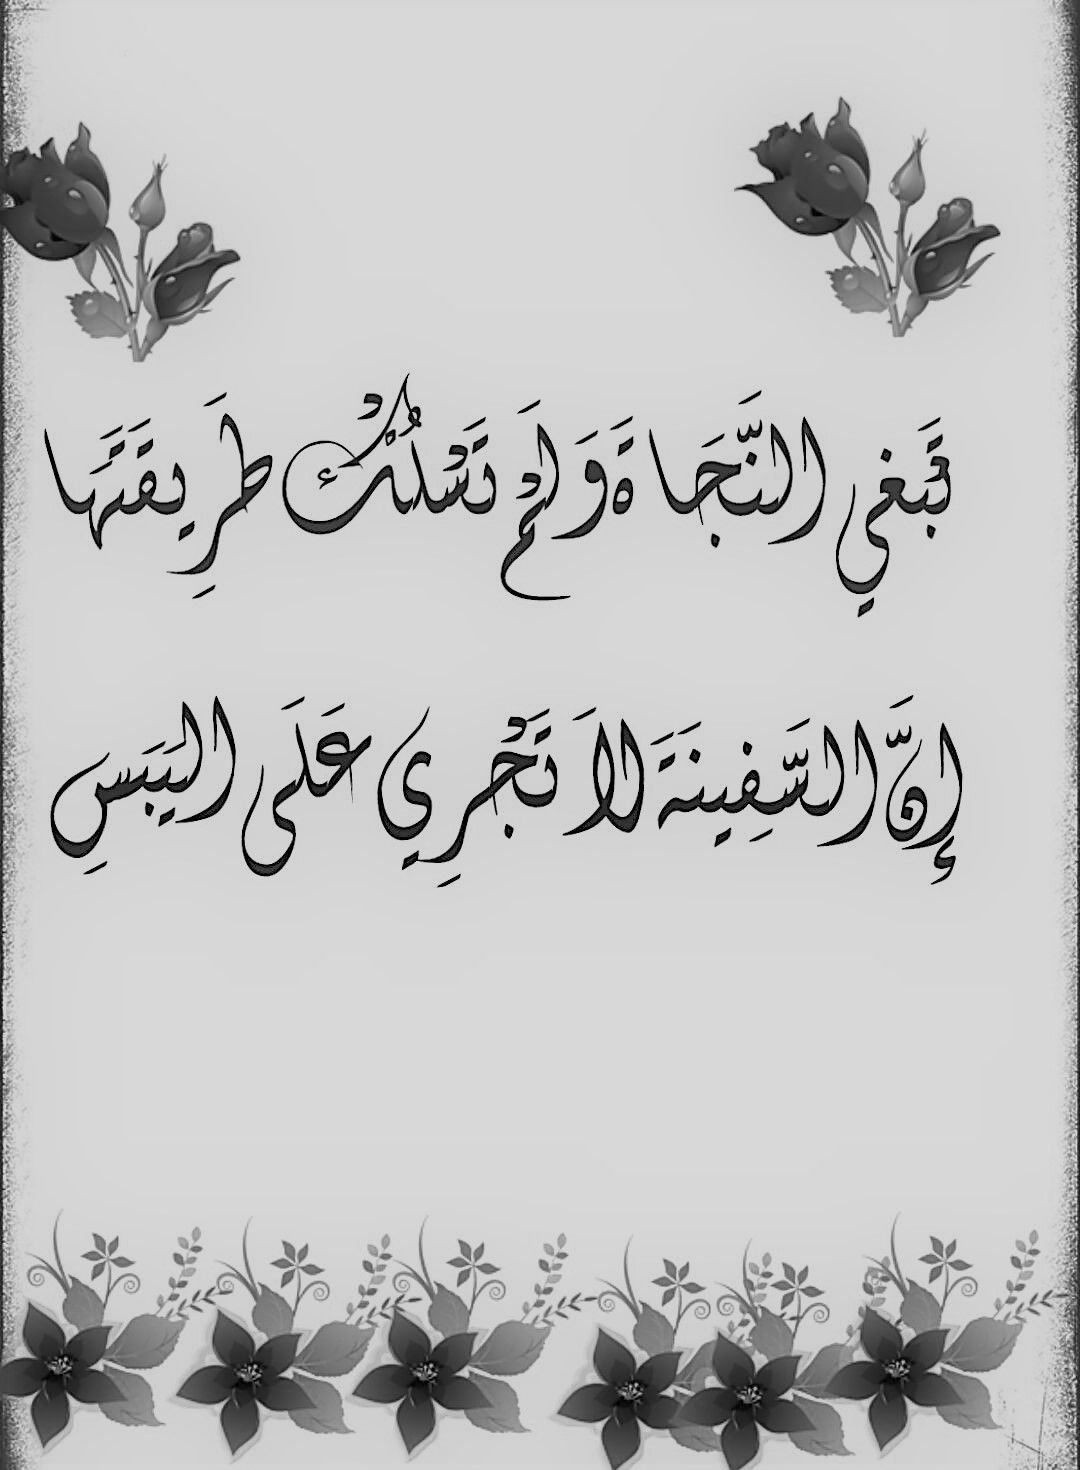 تَبْغِي النَّجَاةَ وَلَمْ تَسْلُكْ طَرِيقَتَهَا
إِنَّ السَّفِينَةَ لاَ تَجْرِي عَلَى اليَبَسِ